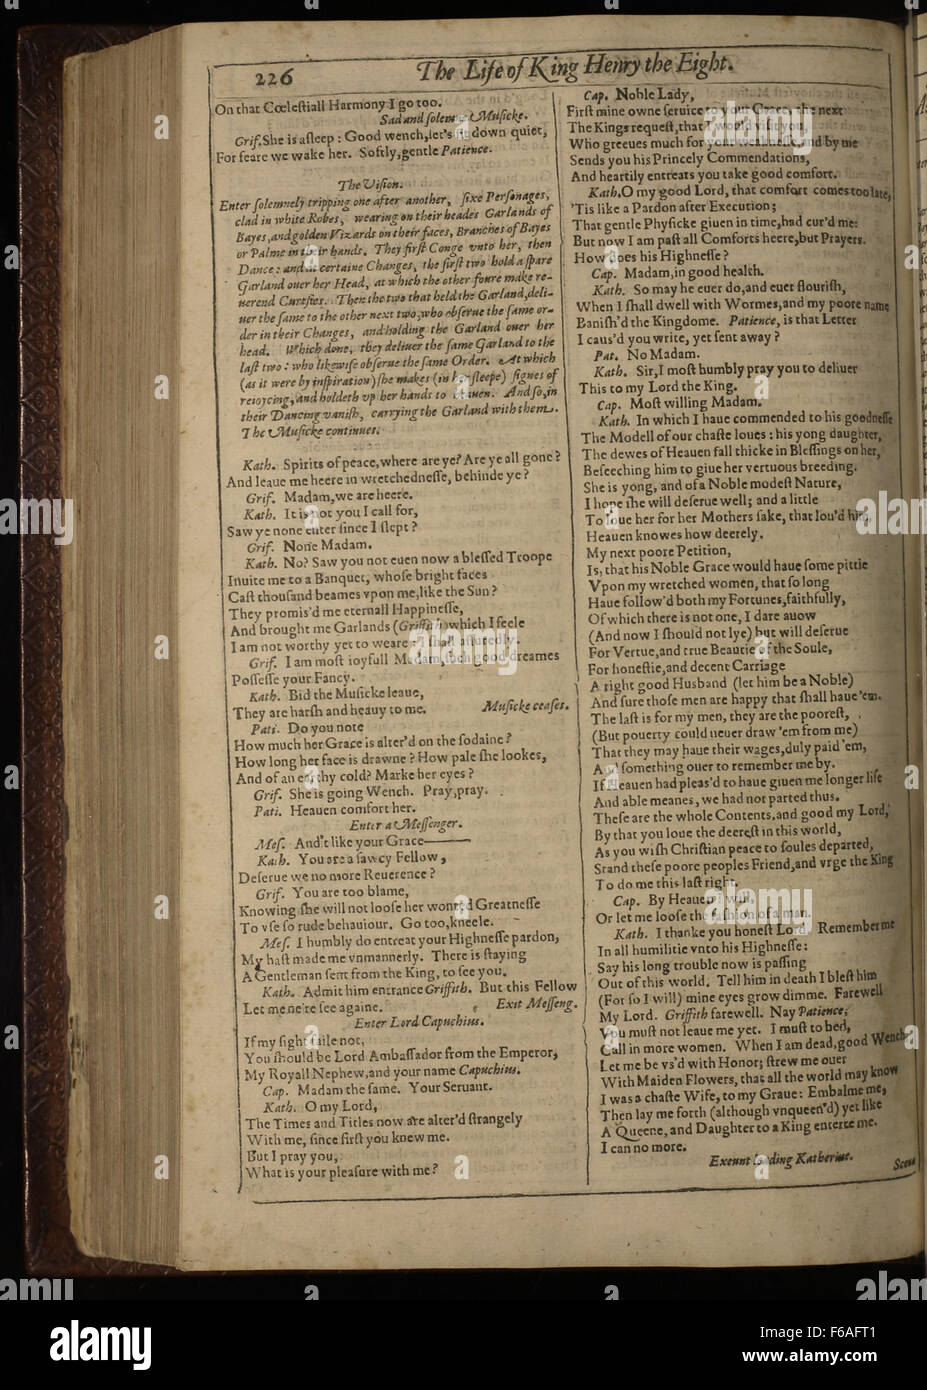 226
The Life of King Henry the Eight.
On that Cœleſtiall Harmony I go too.
Sad and ſolemne Muſicke.
Grif. She is aſleep: Good wench, let's ſit down quiet,
For feare we wake her. Softly, gentle Patience.
The Viſion.
Enter ſolemnely tripping one after another, ſixe Perſonages,
clad in white Robes, wearing on their heades Garlands of
Bayes, and golden Vizards on their faces, Branches of Bayes
or Palme in their hands. They firſt Conge vnto her, then
Dance: and at certaine Changes, the firſt two hold a ſpare
Garland ouer her Head, at which the other foure make re-
uerend Curtſies. Then the two that held the Garland, deli-
uer the ſame to the other next two, who obſerue the ſame or-
der in their Changes, and holding the Garland ouer her
head. Which done, they deliuer the ſame Garland to the
laſt two: who likewiſe obſerue the ſame Order. At which
(as it were by inſpiration) ſhe makes (in her ſleepe) ſignes of
reioycing, and holdeth vp her hands to Heauen. And ſo, in
their Dancing vaniſh, carrying the Garland with them.
The Muſicke continues.
Kath. Spirits of peace, where are ye? Are ye all gone?
And leaue me heere in wretchedneſſe, behinde ye?
Grif. Madam, we are heere.
Kath. It is not you I call for,
Saw ye none enter ſince I ſlept?
Grif. None Madam.
Kath. No? Saw you not euen now a bleſſed Troope
Inuite me to a Banquet, whoſe bright faces
Caſt thouſand beames vpon me, like the Sun?
They promis'd me eternall Happineſſe,
And brought me Garlands (Griffith) which I feele
I am not worthy yet to weare: I ſhall aſſuredly.
Grif. I am moſt ioyfull Madam, ſuch good dreames
Poſſeſſe your Fancy.
Kath. Bid the Muſicke leaue,
They are harſh and heauy to me. Muſicke ceaſes.
Pati. Do you note
How much her Grace is alter'd on the ſodaine?
How long her face is drawne? How pale ſhe lookes,
And of an earthy cold? Marke her eyes?
Grif. She is going Wench. Pray, pray.
Pati. Heauen comfort her.
Enter a Meſſenger.
Meſ. And't like your Grace——
Kath. You are a ſawcy Fellow,
Deſerue we no more Reuerence?
Grif. You are too blame,
Knowing ſhe will not looſe her wonted Greatneſſe
To vſe ſo rude behauiour. Go too, kneele.
Meſ. I humbly do entreat your Highneſſe pardon,
My haſt made me vnmannerly. There is ſtaying
A Gentleman ſent from the King, to ſee you.
Kath. Admit him entrance Griffith. But this Fellow
Let me ne're ſee againe. Exit Meſſeng.
Enter Lord Capuchius.
If my ſight faile not,
You ſhould be Lord Ambaſſador from the Emperor,
My Royall Nephew, and your name Capuchius.
Cap. Madam the ſame. Your Seruant.
Kath. O my Lord,
The Times and Titles now are alter'd ſtrangely
With me, ſince firſt you knew me.
But I pray you,
What is your pleaſure with me?
Cap. Noble Lady,
Firſt mine owne ſeruice to your Grace, the next
The Kings requeſt, that I would viſit you,
Who greeues much for your weakneſſe, and by me
Sends you his Princely Commendations,
And heartily entreats you take good comfort.
Kath. O my good Lord, that comfort comes too late,
'Tis like a Pardon after Execution;
That gentle Phyſicke giuen in time, had cur'd me:
But now I am paſt all Comforts heere, but Prayers.
How does his Highneſſe?
Cap. Madam, in good health.
Kath. So may he euer do, and euer flouriſh,
When I ſhall dwell with Wormes, and my poore name
Baniſh'd the Kingdome. Patience, is that Letter
I caus'd you write, yet ſent away?
Pat. No Madam.
Kath. Sir, I moſt humbly pray you to deliuer
This to my Lord the King.
Cap. Moſt willing Madam.
Kath. In which I haue commended to his goodneſſe
The Modell of our chaſte loues: his yong daughter,
The dewes of Heauen fall thicke in Bleſſings on her,
Beſeeching him to giue her vertuous breeding.
She is yong, and of a Noble modeſt Nature,
I hope ſhe will deſerue well; and a little
To loue her for her Mothers ſake, that lou'd him,
Heauen knowes how deerely.
My next poore Petition,
Is, that his Noble Grace would haue ſome pittie
Vpon my wretched women, that ſo long
Haue follow'd both my Fortunes, faithfully,
Of which there is not one, I dare auow
(And now I ſhould not lye) but will deſerue
For Vertue, and true Beautie of the Soule,
For honeſtie, and decent Carriage
A right good Husband (let him be a Noble)
And ſure thoſe men are happy that ſhall haue 'em.
The laſt is for my men, they are the pooreſt,
(But pouerty could neuer draw 'em from me)
That they may haue their wages, duly paid 'em,
And ſomething ouer to remember me by.
If Heauen had pleas'd to haue giuen me longer life
And able meanes, we had not parted thus.
Theſe are the whole Contents, and good my Lord,
By that you loue the deereſt in this world,
As you wiſh Chriſtian peace to ſoules departed,
Stand theſe poore peoples Friend, and vrge the King
To do me this laſt right.
Cap. By Heauen I will,
Or let me looſe the faſhion of a man.
Kath. I thanke you honeſt Lord. Remember me
In all humilitie vnto his Highneſſe:
Say his long trouble now is paſſing
Out of this world. Tell him in death I bleſt him
(For ſo I will) mine eyes grow dimme. Farewell
My Lord. Griffith farewell. Nay Patience,
You muſt not leaue me yet. I muſt to bed,
Call in more women. When I am dead, good Wench,
Let me be vs'd with Honor; ſtrew me ouer
With Maiden Flowers, that all the world may know
I was a chaſte Wife, to my Graue: Embalme me,
Then lay me forth (although vnqueen'd) yet like
A Queene, and Daughter to a King enterre me.
I can no more.
Exeunt leading Katherine.
Scena
alamy
Image ID: F6AFT1
www.alamy.com